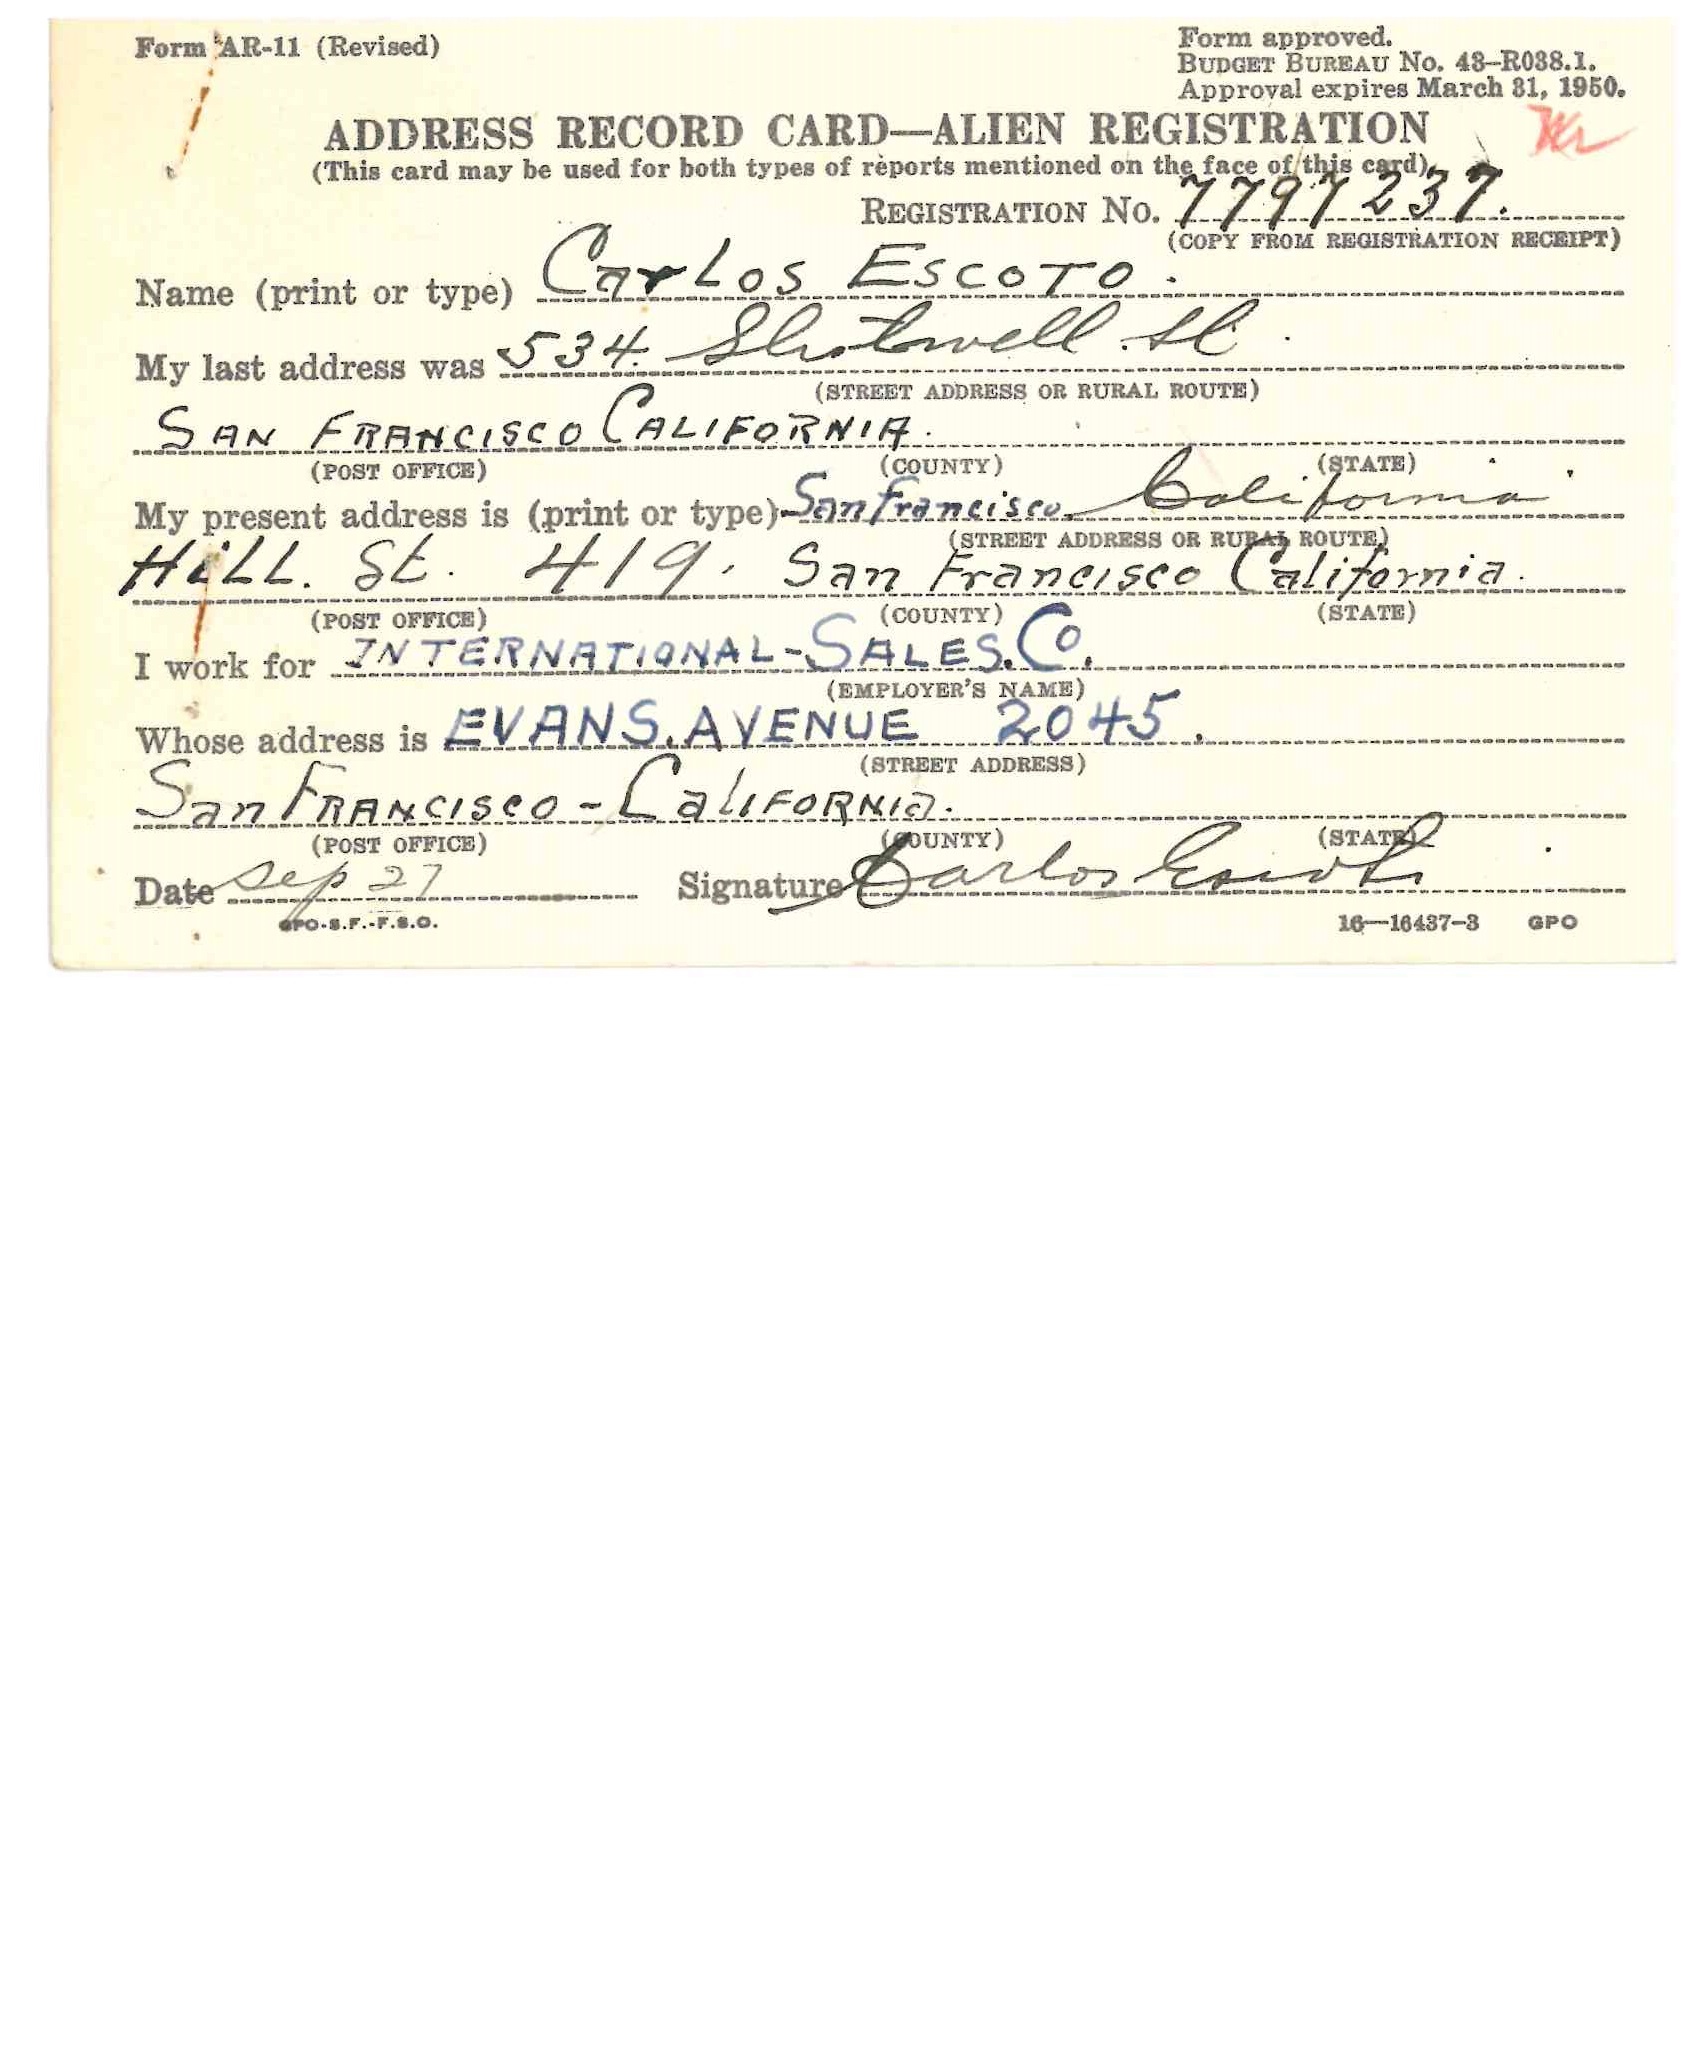 Form AR-11 (Revised)
Form approved.
BUDGET BUREAU NO. 43-R038.1.
Approval expires March 31, 1950.
ADDRESS RECORD CARD—ALIEN REGISTRATION
(This card may be used for both types of reports mentioned on the face of this card)
REGISTRATION NO. 7797237.
(COPY FROM REGISTRATION RECEIPT)
Name (print or type) CarLos ESCOTO.
My last address was 534. Shotwell. St.
(STREET ADDRESS OR RURAL ROUTE)
SAN FRANCISCO CALIFORNIA.
(POST OFFICE) (COUNTY) (STATE)
My present address is (print or type) San Francisco. California
(STREET ADDRESS OR RURAL ROUTE)
HiLL. St. 419. San Francisco California.
(POST OFFICE) (COUNTY) (STATE)
I work for INTERNATIONAL-SALES.CO.
(EMPLOYER'S NAME)
Whose address is EVANS.AVENUE 2045.
(STREET ADDRESS)
San FRANCISCO-CaLIFORNIa.
(POST OFFICE) (COUNTY) (STATE)
Date Sep 27 Signature Carlos Escoto
GPO-S.F.-F.S.O. 16—16437-3 GPO